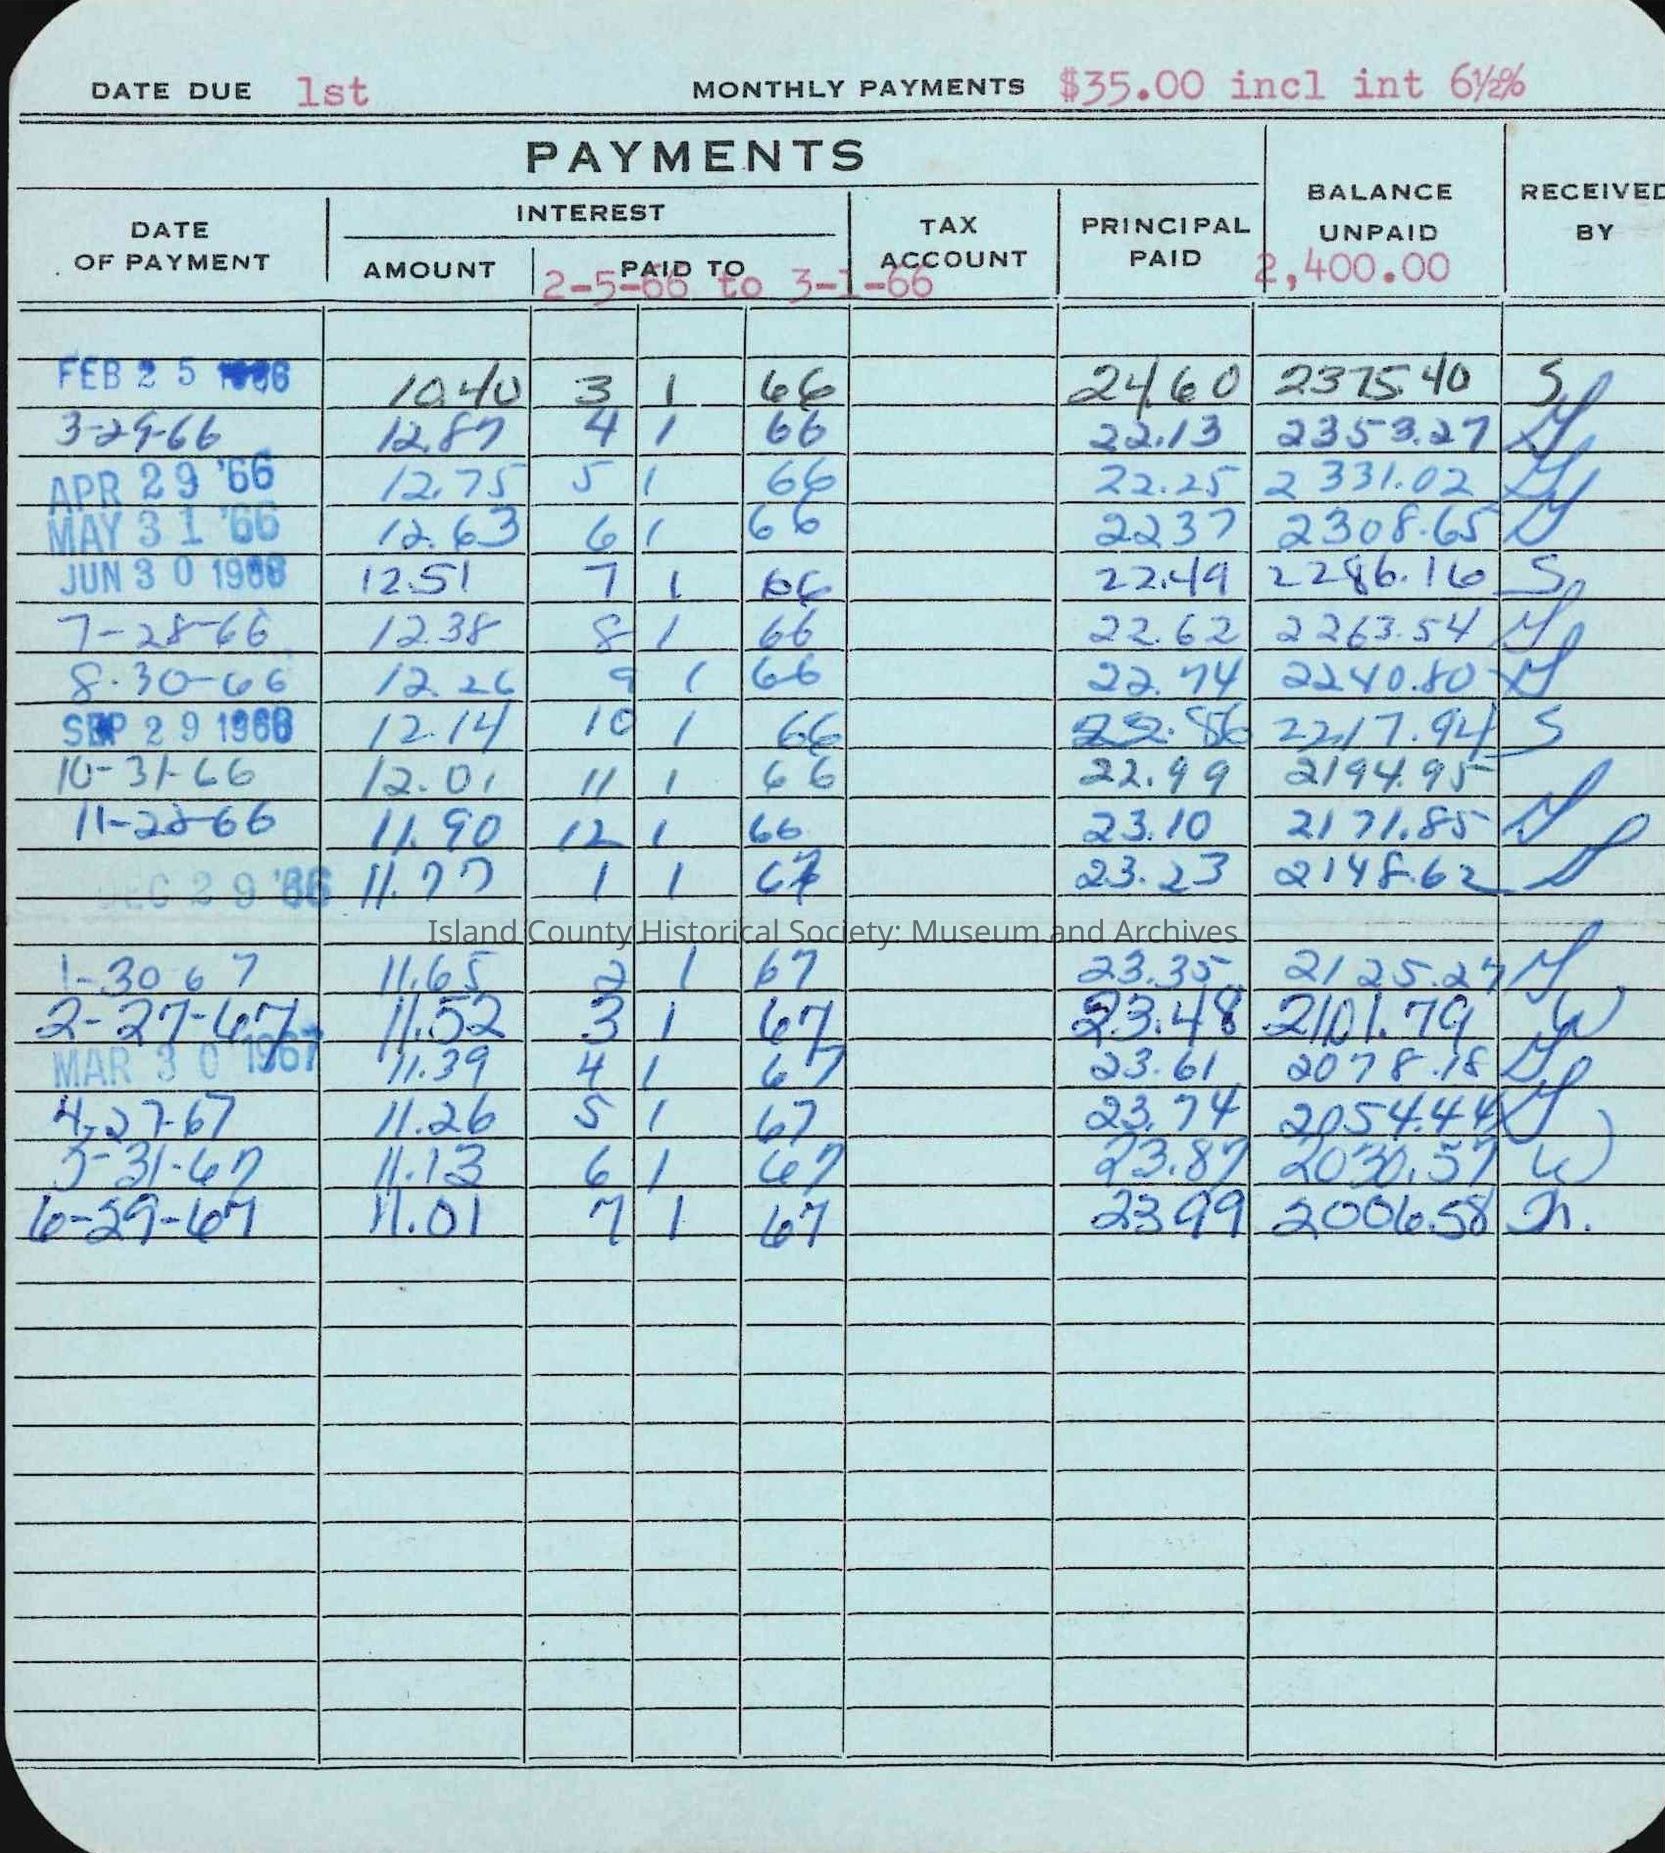 DATE DUE 1st MONTHLY PAYMENTS $35.00 incl int 6½%
PAYMENTS
DATE OF PAYMENT INTEREST AMOUNT PAID TO TAX ACCOUNT PRINCIPAL PAID BALANCE UNPAID RECEIVED BY
2-5-66 to 3-1-66 2,400.00
FEB 25 1966 10.40 3 1 66 24.60 2375.40 S
3-29-66 12.87 4 1 66 22.13 2353.27
APR 29 '66 12.75 5 1 66 22.25 2331.02
MAY 31 '66 12.63 6 1 66 22 37 2308.65
JUN 30 1966 12.51 7 1 66 22.49 2286.16 S
7-28-66 12.38 8 1 66 22.62 2263.54
8-30-66 12.26 9 1 66 22.74 2240.80
SEP 29 1966 12.14 10 1 66 22.86 2217.94 S
10-31-66 12.01 11 1 66 22.99 2194.95
11-28-66 11.90 12 1 66 23.10 2171.85
DEC 29 '66 11.77 1 1 67 23.23 2148.62
Island County Historical Society: Museum and Archives
1-30 67 11.65 2 1 67 23.35 2125.27
2-27-67 11.52 3 1 67 23.48 2101.79 W
MAR 30 1967 11.39 4 1 67 23.61 2078.18
4-27-67 11.26 5 1 67 23.74 2054.44
5-31-67 11.13 6 1 67 23.87 2030.57 W
6-29-67 11.01 7 1 67 23 99 2006.58 M.